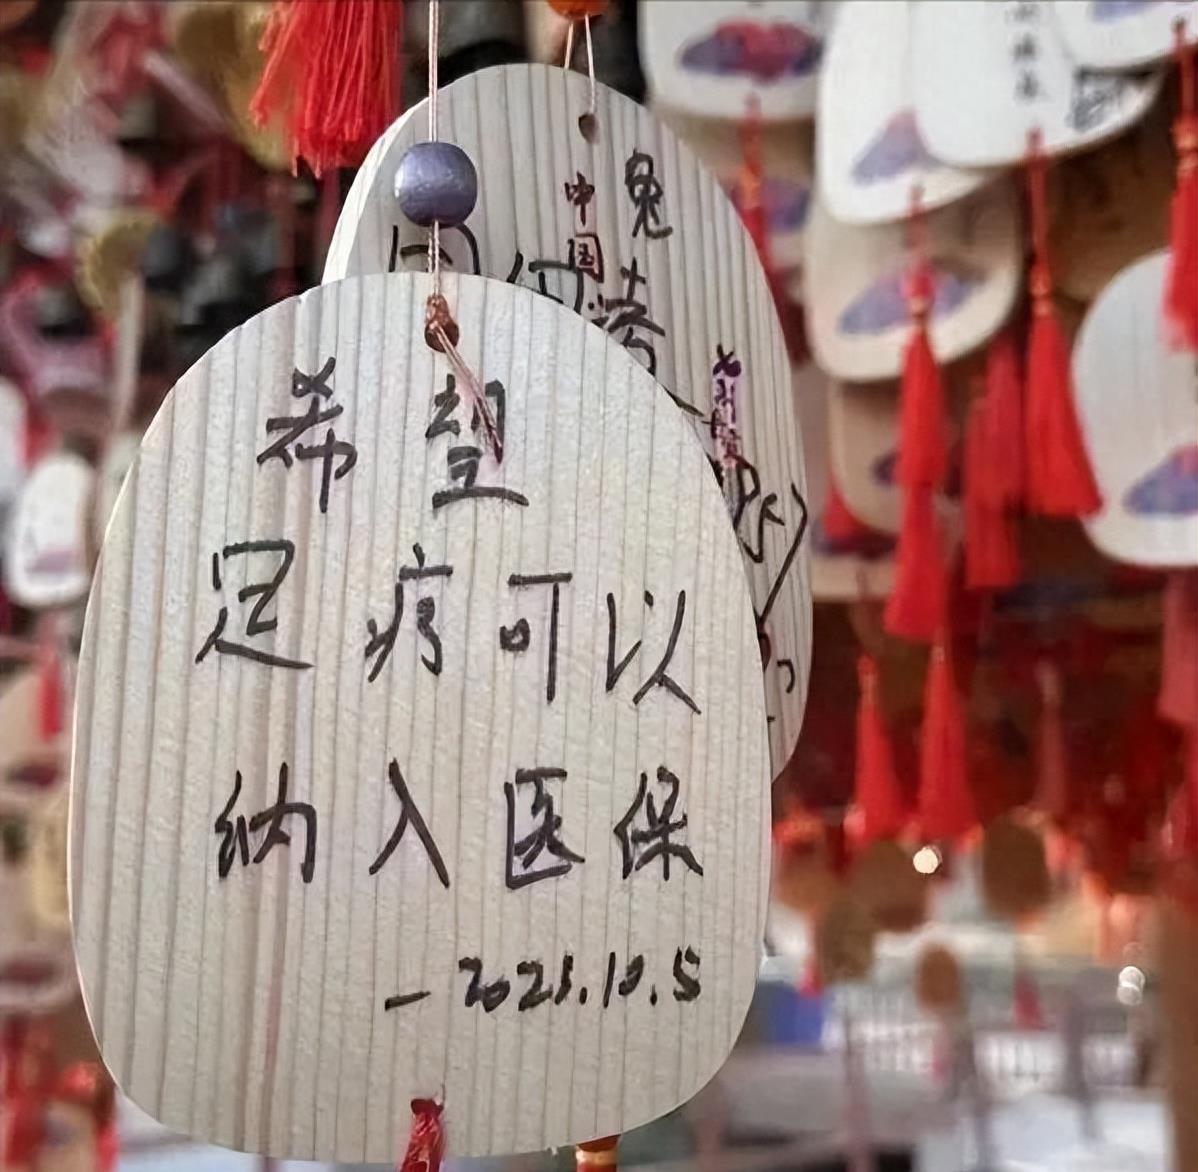 希望
足疗可以
纳入医保
-2021.10.5
中国
兔